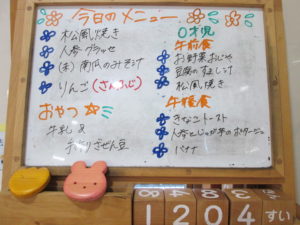 今日のメニュー
松風焼き
人参グラッセ
(未) 南瓜のみそ汁
りんご (さんふじ)
おやつ
牛乳 &
手作りざぜん豆
0才児
午前食
お野菜おじや
豆腐のすまし汁
松風焼き
午後食
きなこトースト
人参とじゃが芋のポタージュ
バナナ
1 2 0 4 すい